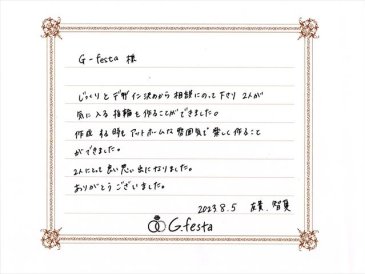 G-festa 様
じっくりとデザイン決めから相談にのって下さり 2人が
気に入る指輪を作ることができました。
作成する時もアットホームな雰囲気で楽しく作ること
ができました。
2人にとって良い思い出になりました。
ありがとうございました。
2023.8.5
G.festa